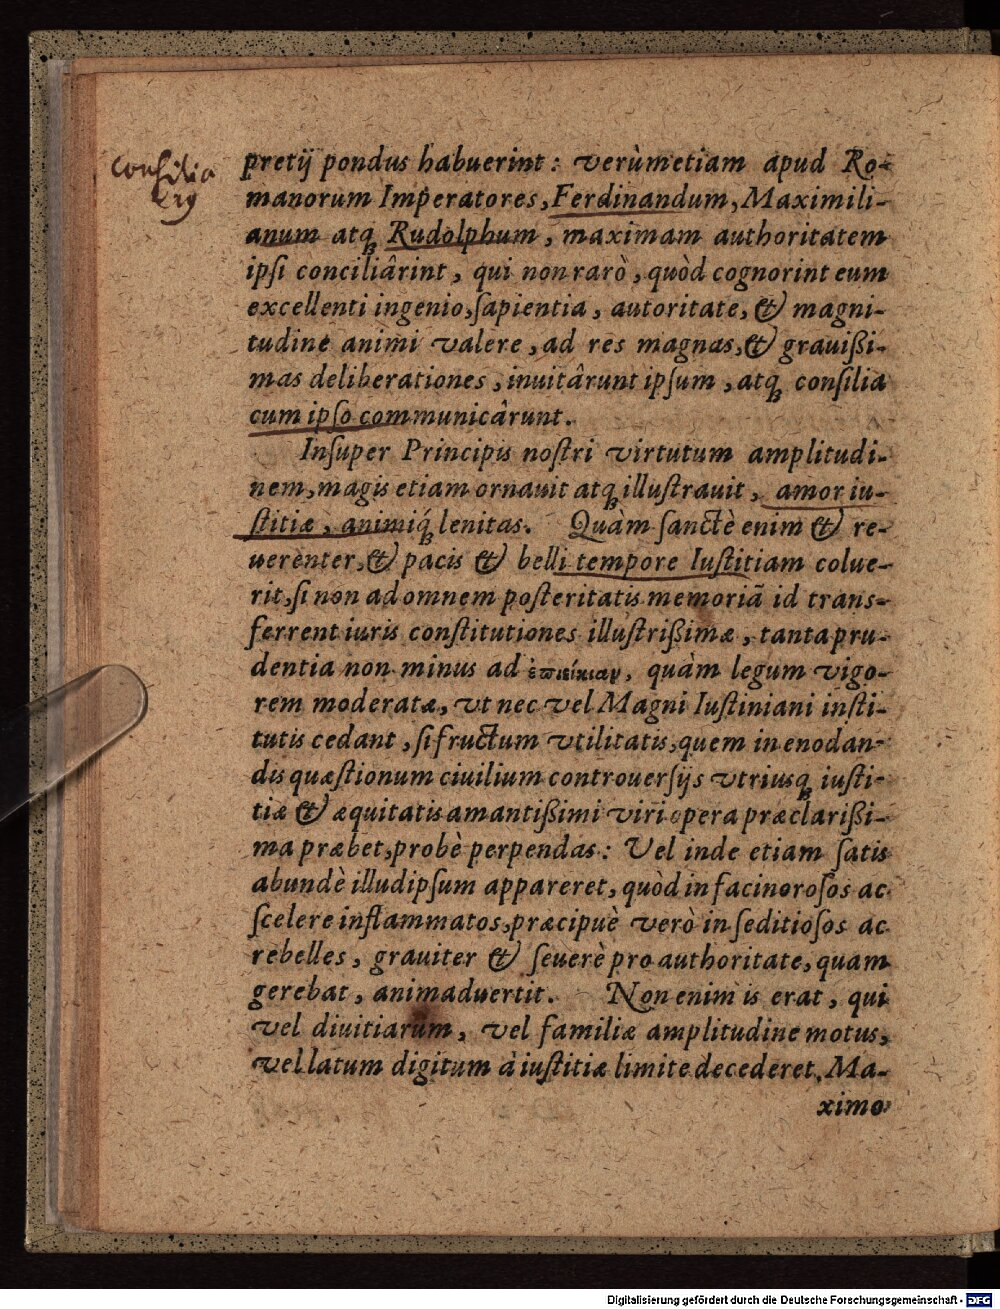 consilia
pretij pondus habuerint: verùm etiam apud Ro-
manorum Imperatores, Ferdinandum, Maximili-
anum atq́ꝫ Rudolphum, maximam authoritatem
ipſi conciliârint, qui non rarò, quòd cognorint eum
excellenti ingenio, ſapientia, autoritate, & magni-
tudine animi valere, ad res magnas, & grauißi-
mas deliberationes, inuitârunt ipſum, atqꝫ conſilia
cum ipſo communicârunt.
Inſuper Principis noſtri virtutum amplitudi-
nem, magis etiam ornauit atqꝫ illuſtrauit, amor iu-
ſtitiæ, animiq́ꝫ lenitas. Quàm ſanctè enim & re-
uerenter, & pacis & belli tempore Iuſtitiam colue-
rit, ſi non ad omnem poſteritatis memoriã id trans-
ferrent iuris conſtitutiones illuſtrißimæ, tanta pru-
dentia non minus ad ἐπιείκιαν, quàm legum vigo-
rem moderatæ, vt nec vel Magni Iuſtiniani inſti-
tutis cedant, ſi fructum vtilitatis, quem in enodan-
dis quæſtionum ciuilium controuerſijs vtriusqꝫ iuſti-
tiæ & æquitatis amantißimi viri opera præclarißi-
ma præbet, probè perpendas: Vel inde etiam ſatis
abundè illud ipſum appareret, quòd in facinoroſos ac
ſcelere inflammatos, præcipuè verò in ſeditioſos ac
rebelles, grauiter & ſeuerè pro authoritate, quam
gerebat, animaduertit. Non enim is erat, qui
vel diuitiarum, vel familiæ amplitudine motus,
vel latum digitum à iuſtitiæ limite decederet. Ma-
ximo
Digitalisierung gefördert durch die Deutsche Forschungsgemeinschaft - DFG